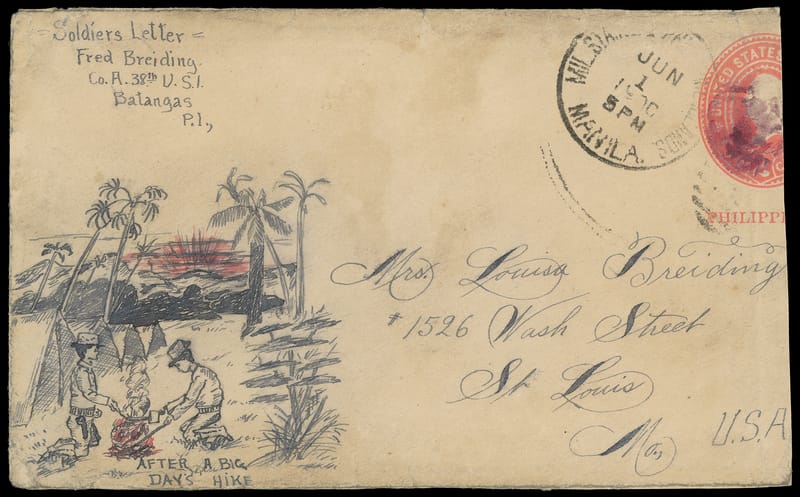 = Soldiers Letter =
Fred Breiding.
Co. A. 38th U.S.I.
Batangas
P.I.,
MIL. STA.
JUN
1
1900
5 PM
MANILA.
UNITED STATES
PHILIPPI
Mrs. Louisa Breiding
# 1526 Wash Street
St Louis
Mo,
U.S.A
AFTER A BIG
DAYS HIKE